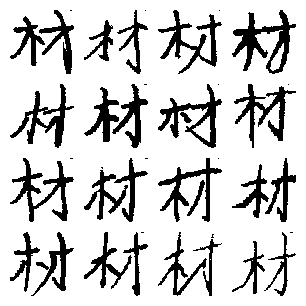 材材材材
材材材材
材材材材
材材材材